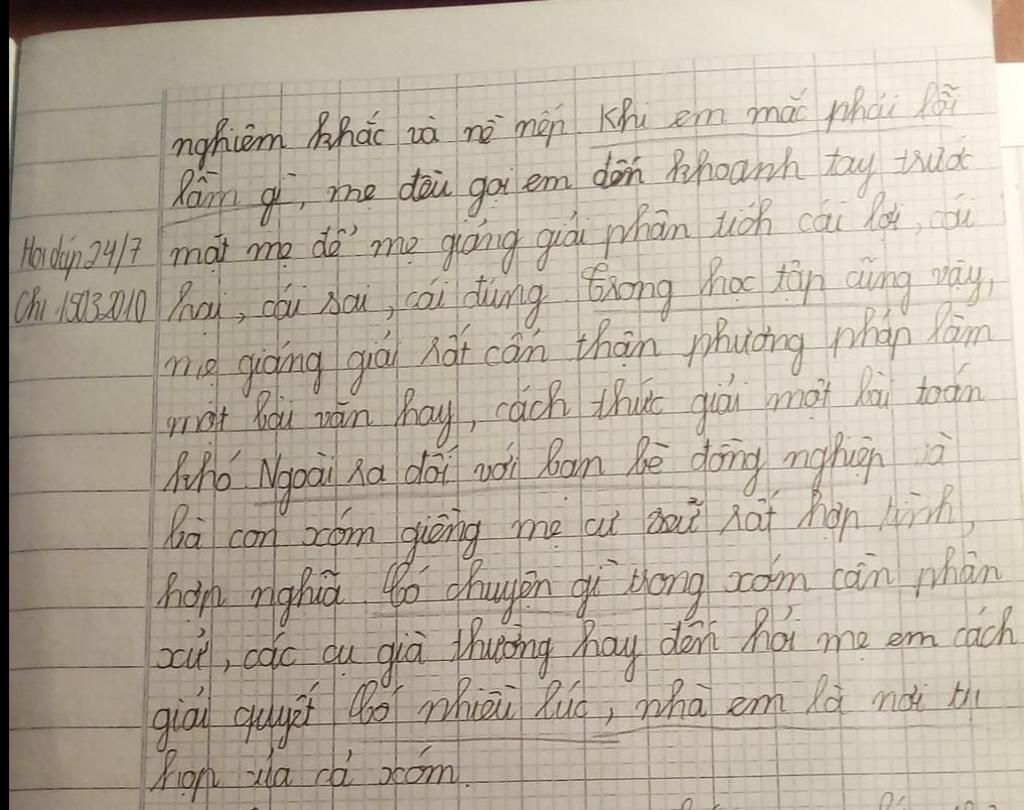 nghiêm khắc và nề nếp Khi em mắc phải lỗi
lầm gì, mẹ đều gọi em đến khoanh tay trước
Hỏi đáp 24/7
mặt mẹ để mẹ giảng giải phân tích cái lợi, cái
Chi 15032010
hại, cái sai, cái đúng Trong học tập cũng vậy,
mẹ giảng giải rất cẩn thận phương pháp làm
một bài văn hay, cách thức giải một bài toán
khó Ngoài ra đối với bạn bè đồng nghiệp và
bà con xóm giềng mẹ cư xử rất hợp tình,
hợp nghĩa Có chuyện gì trong xóm cần phân
xử, các cụ già thường hay đến hỏi mẹ em cách
giải quyết Có nhiều lúc, nhà em là nơi tụ
họp của cả xóm.